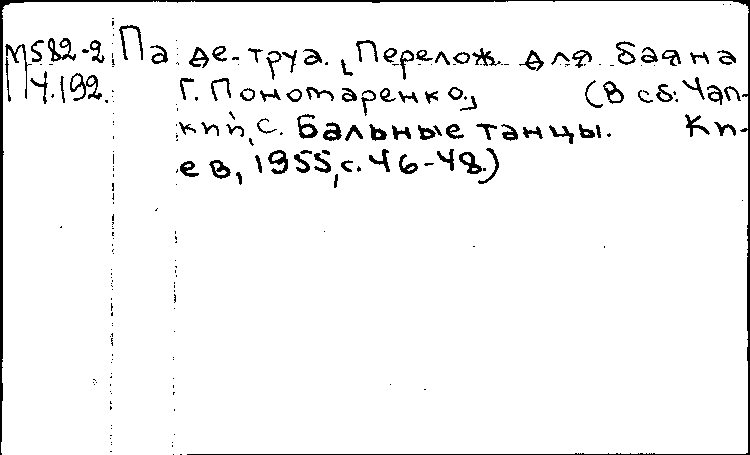 М582-2 Па де-труа. [Перелож. для баяна
П4.192. Г. Пономаренко] (В сб: Чап-
кий, С. Бальные танцы. Ки-
ев, 1955, с. 46-48.)